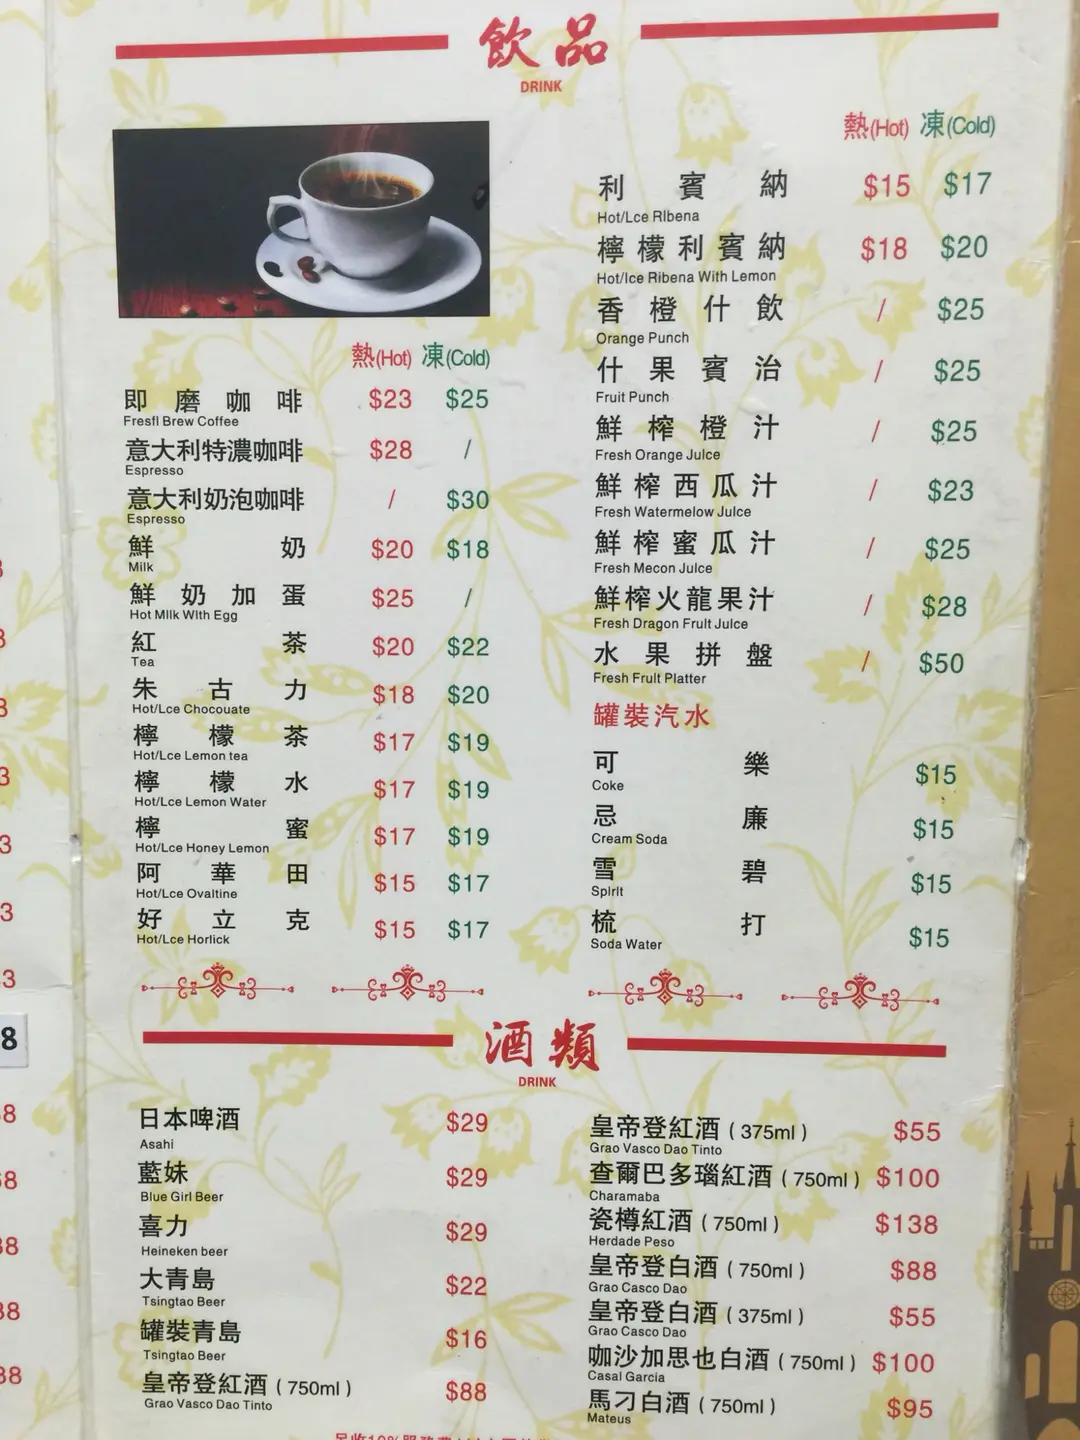 飲品
DRINK
熱(Hot) 凍(Cold)
即磨咖啡 $23 $25
Fresfl Brew Coffee
意大利特濃咖啡 $28 /
Espresso
意大利奶泡咖啡 / $30
Espresso
鮮奶 $20 $18
Milk
鮮奶加蛋 $25 /
Hot Milk With Egg
紅茶 $20 $22
Tea
朱古力 $18 $20
Hot/Lce Chocouate
檸檬茶 $17 $19
Hot/Lce Lemon tea
檸檬水 $17 $19
Hot/Lce Lemon Water
檸蜜 $17 $19
Hot/Lce Honey Lemon
阿華田 $15 $17
Hot/Lce Ovaltine
好立克 $15 $17
Hot/Lce Horlick
熱(Hot) 凍(Cold)
利賓納 $15 $17
Hot/Lce RIbena
檸檬利賓納 $18 $20
Hot/Ice Ribena With Lemon
香橙什飲 / $25
Orange Punch
什果賓治 / $25
Fruit Punch
鮮榨橙汁 / $25
Fresh Orange Julce
鮮榨西瓜汁 / $23
Fresh Watermelow Julce
鮮榨蜜瓜汁 / $25
Fresh Mecon Julce
鮮榨火龍果汁 / $28
Fresh Dragon Frult Julce
水果拼盤 / $50
Fresh Fruit Platter
罐裝汽水
可樂 $15
Coke
忌廉 $15
Cream Soda
雪碧 $15
Spirit
梳打 $15
Soda Water
酒類
DRINK
日本啤酒 $29
Asahi
藍妹 $29
Blue Girl Beer
喜力 $29
Heineken beer
大青島 $22
Tsingtao Beer
罐裝青島 $16
Tsingtao Beer
皇帝登紅酒 ( 750ml ) $88
Grao Vasco Dao Tinto
皇帝登紅酒 ( 375ml ) $55
Grao Vasco Dao Tinto
查爾巴多瑙紅酒 ( 750ml ) $100
Charamaba
瓷樽紅酒 ( 750ml ) $138
Herdade Peso
皇帝登白酒 ( 750ml ) $88
Grao Casco Dao
皇帝登白酒 ( 375ml ) $55
Grao Casco Dao
咖沙加思也白酒 ( 750ml ) $100
Casal Garcia
馬刁白酒 ( 750ml ) $95
Mateus